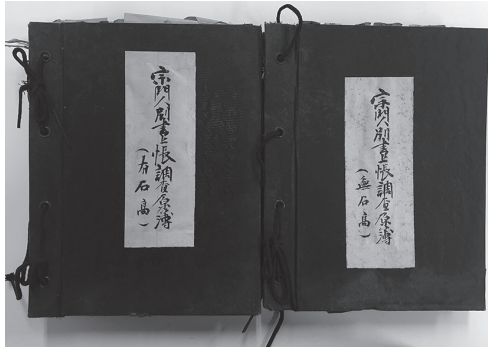 宗門人別書上帳調査原簿
(有石高)
宗門人別書上帳調査原簿
(無石高)